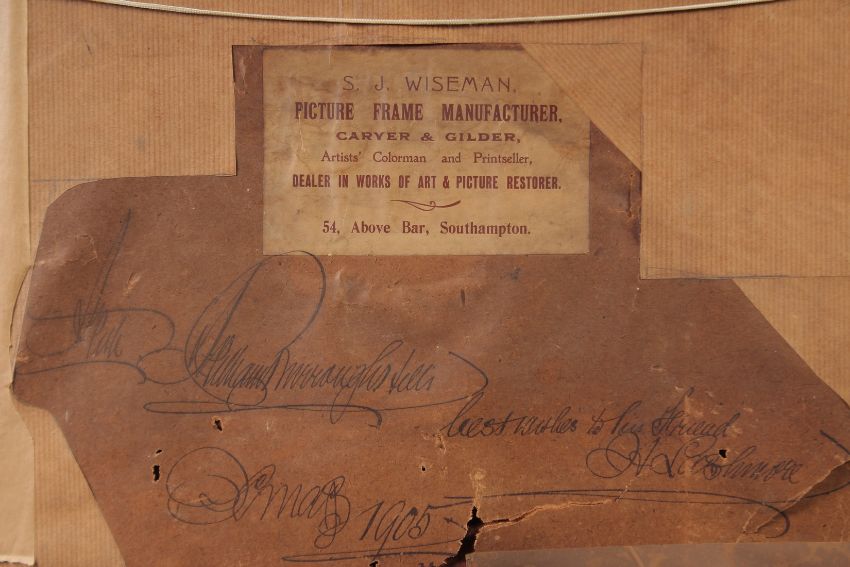 S. J. WISEMAN,
PICTURE FRAME MANUFACTURER,
CARVER & GILDER,
Artists' Colorman and Printseller,
DEALER IN WORKS OF ART & PICTURE RESTORER.
54, Above Bar, Southampton.
With William Burroughs
best wishes to his friend
1905